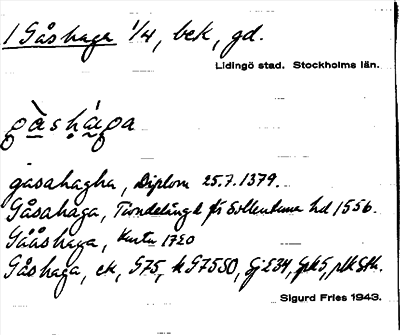 1 Gåshaga 1/4, bek, gd.
Lidingö stad. Stockholms län.
gåshaga
gasahagha, Diplom 25.7.1379.
Gåsahaga, Tiondelängd fs Sollentuna hd 1556.
Gååshaga, Karta 1720
Gåshaga, ek, G75, k G75SO, Sjö E34,
Sigurd Fries 1943.